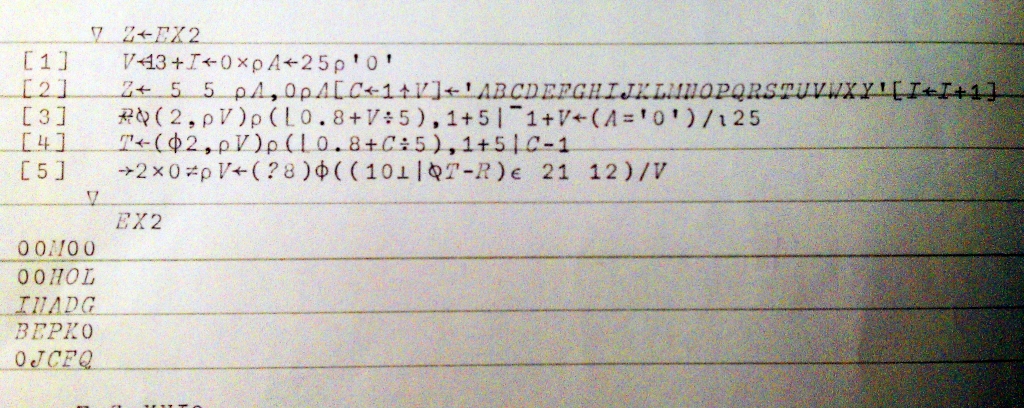 ∇ Z←EX2
[1] V←13+I←0×⍴A←25⍴'O'
[2] Z← 5 5 ⍴A,0⍴A[C←1↑V]←'ABCDEFGHIJKLMNOPQRSTUVWXY'[I←I+1]
[3] R←⍉(2,⍴V)⍴(⌊0.8+V÷5),1+5|¯1+V←(A='O')/⍳25
[4] T←(⌽2,⍴V)⍴(⌊0.8+C÷5),1+5|C-1
[5] →2×0≠⍴V←(?8)⌽((10⊥|⍉T-R)∊ 21 12)/V
∇
EX2
OOMOO
OOHOL
INADG
BEPKO
OJCFQ